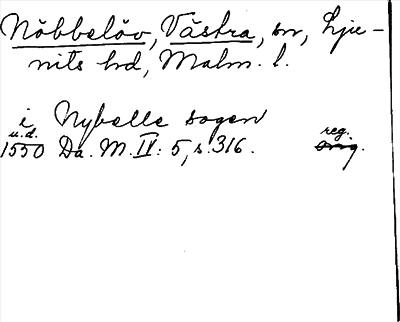 Nöbbelöv, Västra, sn, Lju-
nits hd, Malm. l.
i Nybelle sogen
u.d. reg.
1550 Da. M. IV: 5, s. 316. orig.